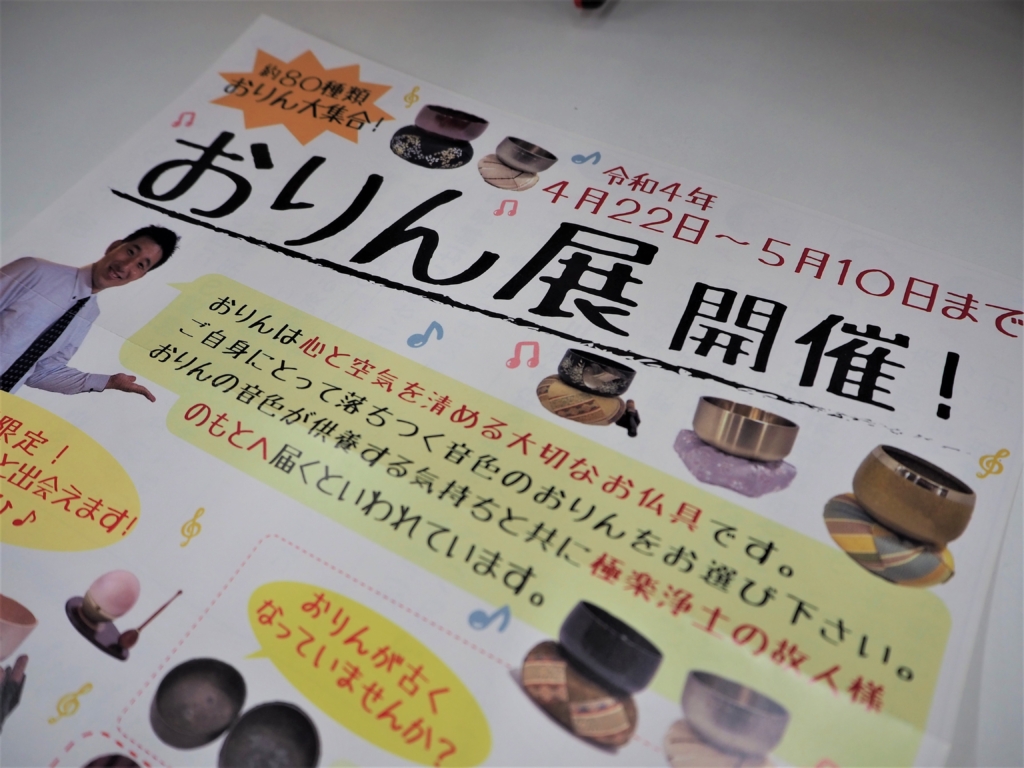 約80種類
おりん大集合!
令和4年
4月22日～5月10日まで
おりん展 開催!
おりんは心と空気を清める大切なお仏具です。
ご自身にとって落ちつく音色のおりんをお選び下さい。
おりんの音色が供養する気持ちと共に極楽浄土の故人様
のもとへ届くといわれています。
限定!
と出会えます!
♪
おりんが古く
なっていませんか?